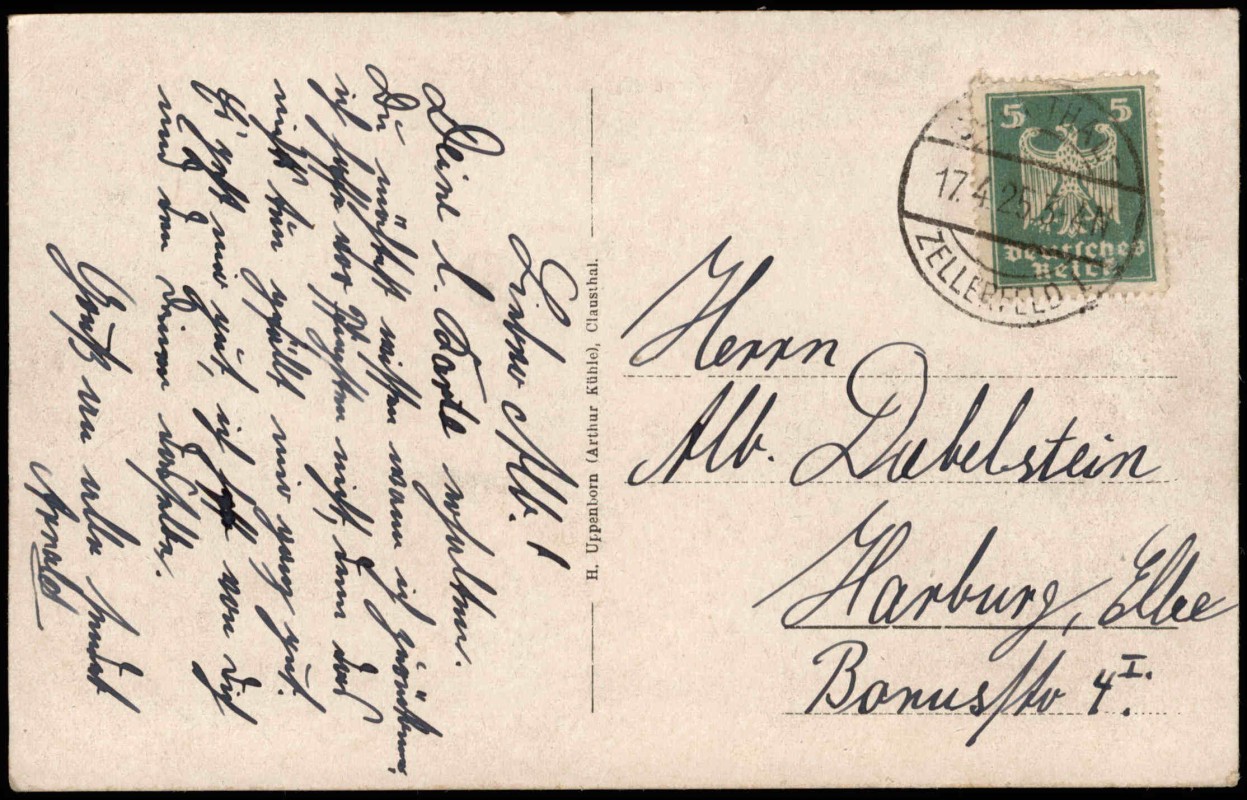 Lieber Alb.!
Deine l. Karte erhalten.
Du möchtest wissen wann ich zurückkomme,
ich hoffe vor Pfingsten nicht, denn das
nicht tun gefällt mir ganz gut.
Es geht mir gut, ich hoffe von Dir
und den Deinen dasselbe.
Gruß an alle sendet
Arnold
H. Uppenborn (Arthur Kühle), Clausthal.
5 5
Deutsches
Reich
17.4.25
ZELLERFELD 1
Herrn
Alb. Dabelstein
Harburg, Elbe
Bonusstr 4 I.